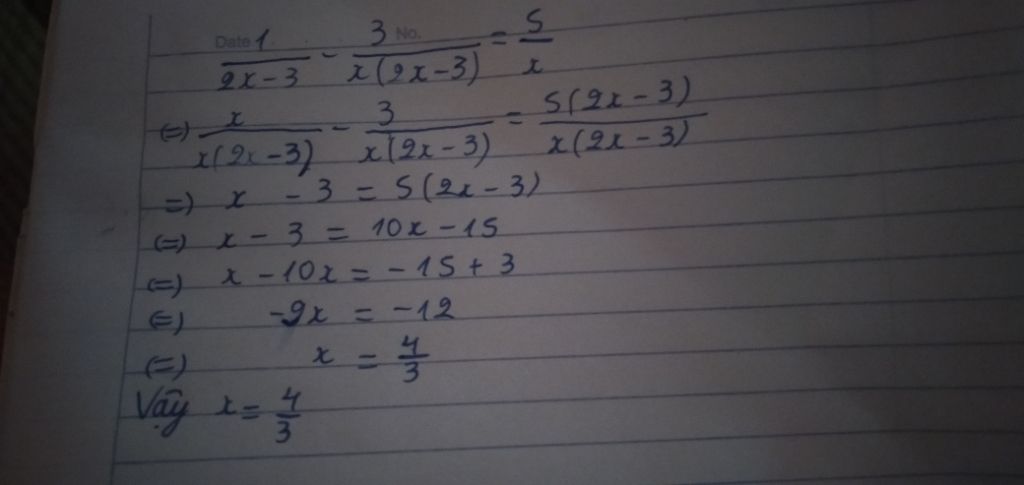 Date No.
1/(2x-3) - 3/(x(2x-3)) = 5/x
(=) x/(x(2x-3)) - 3/(x(2x-3)) = 5(2x-3)/(x(2x-3))
=) x - 3 = 5(2x-3)
(=) x - 3 = 10x - 15
(=) x - 10x = -15 + 3
(=) -9x = -12
(=) x = 4/3
Vậy x = 4/3